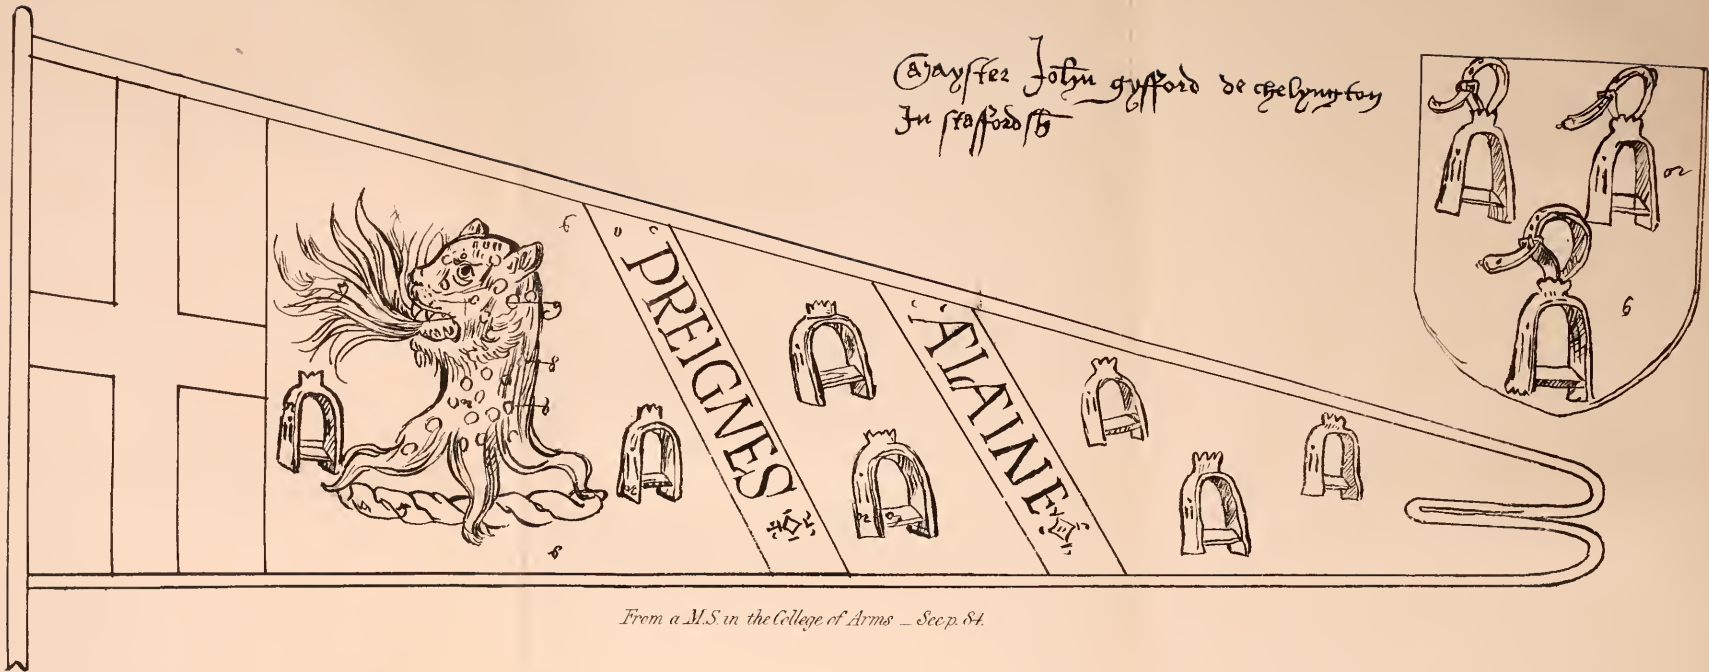 Mayster John gyfford de chelyngton
In staffordsh
or
PREIGNES
ALAINE
From a M.S. in the College of Arms _ See p. 84.